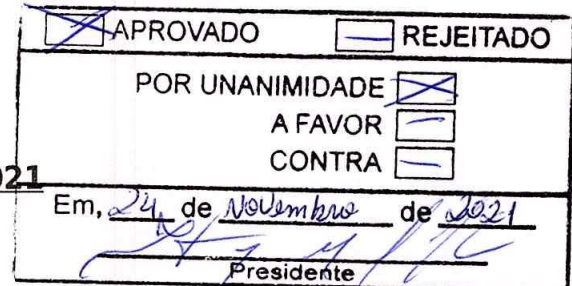 APROVADO REJEITADO
POR UNANIMIDADE
A FAVOR
CONTRA
021
Em, 24 de Novembro de 2021
Presidente